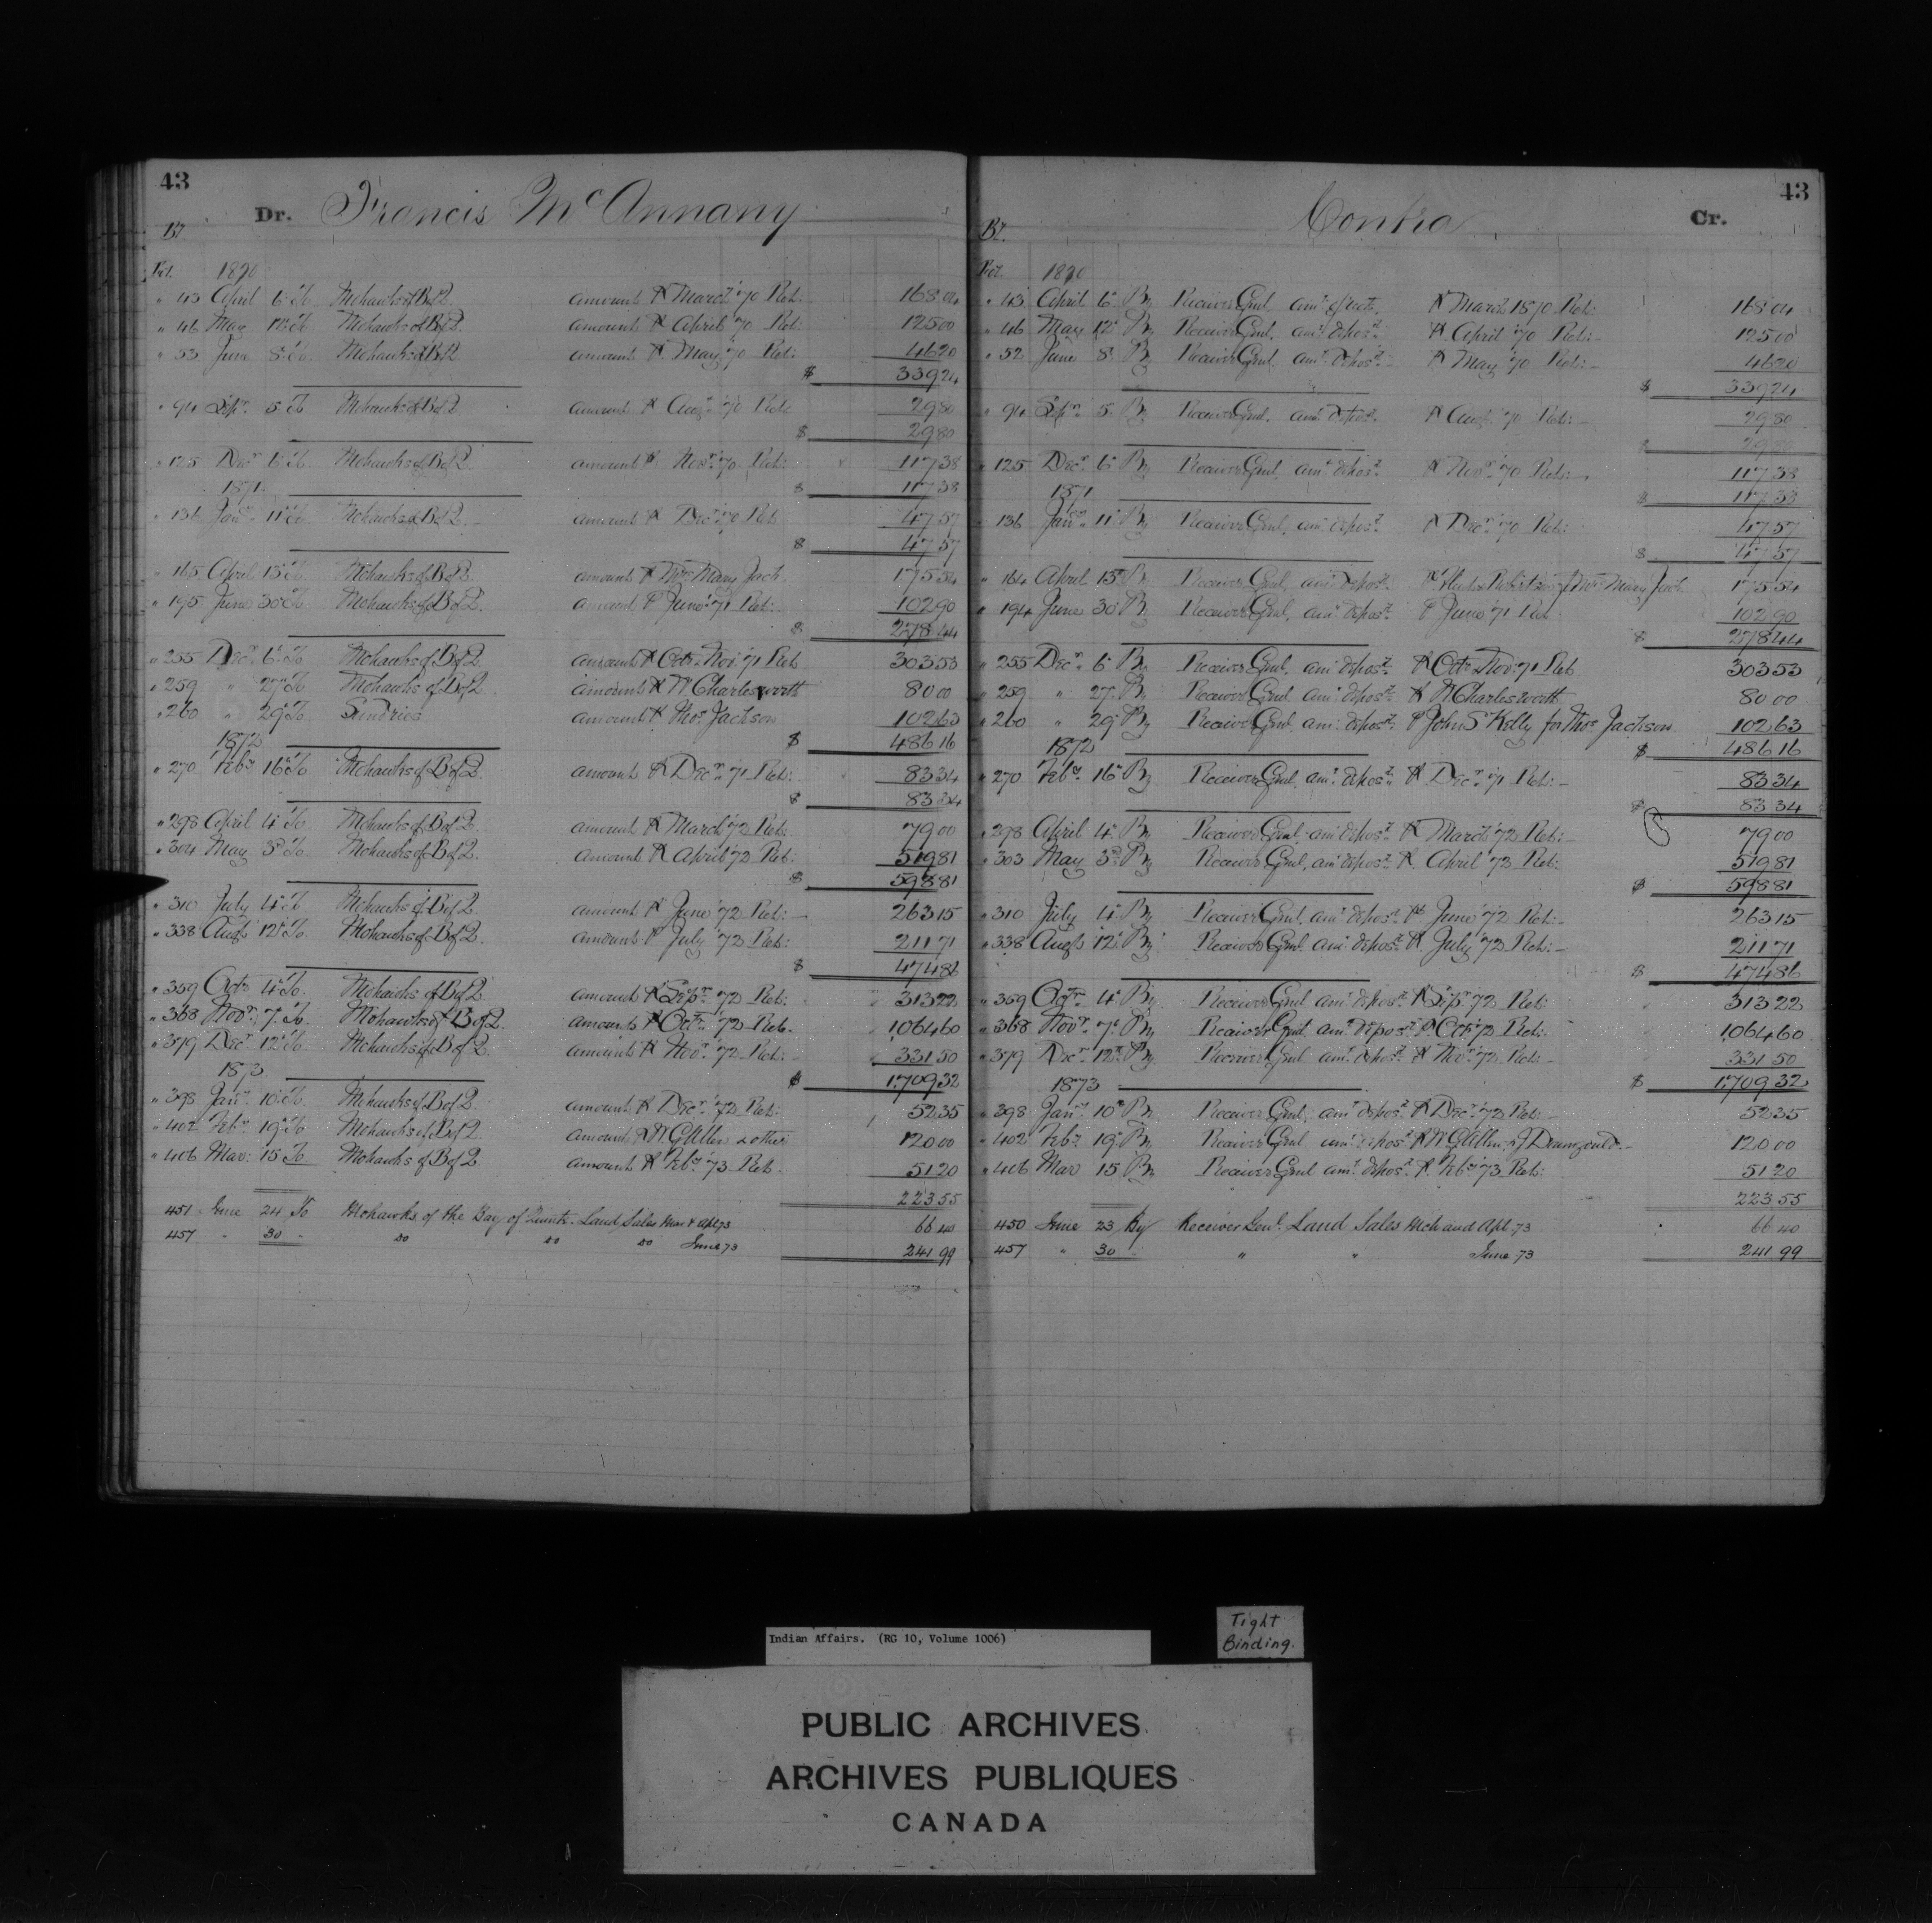 43
Dr. Francis McAnnany
Bt.
Fol. 1870
" 43 April 6" To Mohawks of B of Q. amount P March '70 Ret: 168 04
" 46 May 12" To Mohawks of B of Q. amount P April '70 Ret: 125 00
" 53 June 8" To Mohawks of B of Q. amount P May '70 Ret: 46 20
$ 339 24
" 94 Sepr. 5" To Mohawks of B of Q. amount P Augt. '70 Ret: 29 80
$ 29 80
" 125 Decr. 6" To Mohawks of B of Q. amount P Novr. '70 Ret: 117 38
1871 $ 117 38
" 136 Jany. 11" To Mohawks of B of Q. amount P Decr. '70 Ret 47 57
$ 47 57
" 165 April 13" To Mohawks of B of Q. amount P Mrs. Mary Jack. 175 54
" 195 June 30" To Mohawks of B of Q. amount P June '71 Ret: 102 90
$ 278 44
" 255 Decr. 6" To Mohawks of B of Q. amount P Octr. & Nov: '71 Ret 303 53
" 259 " 27" To Mohawks of B of Q. amount P W. Charlesworth 80 00
" 260 " 29" To Sundries amount P Thos. Jackson 102 63
1872 $ 486 16
" 270 Feby. 16" To Mohawks of B of Q. amount P Decr. '71 Ret: 83 34
$ 83 34
" 298 April 4" To Mohawks of B of Q. amount P March '72 Ret: 79 00
" 304 May 3d To Mohawks of B of Q. amount P April '72 Ret: 519 81
$ 598 81
" 310 July 4" To Mohawks of B of Q. amount P June '72 Ret: 263 15
" 338 Augt. 12" To Mohawks of B of Q. amount P July '72 Ret: 211 71
$ 474 86
" 359 Octr. 4" To Mohawks of B of Q. amount P Sepr. '72 Ret: 313 22
" 368 Novr. 7" To Mohawks of B of Q. amount P Octr. '72 Ret. 1,064 60
" 379 Decr. 12" To Mohawks of B of Q. amount P Novr. '72 Ret: 331 50
1873 $ 1,709 32
" 398 Jany. 10" To Mohawks of B of Q. amount P Decr. '72 Ret: 52 35
" 402 Feby. 19" To Mohawks of B of Q. amount P W. G. Allen & other 120 00
" 406 Mar: 15 To Mohawks of B of Q. amount P Feby. '73 Ret. 51 20
223 55
451 June 24 To Mohawks of the Bay of Quinte. Land Sales Mar & Apl 73 66 40
457 " 30 " do do do June 73 241 99
43
Contra Cr.
Bt.
Fol. 1870
" 43 April 6" By Receiver Genl. amt. of P March 1870 Ret: 168 04
" 46 May 12" By Receiver Genl. amt. depost. P April '70 Ret: 125 00
" 52 June 8" By Receiver Genl. amt. depost. P May '70 Ret: 46 20
$ 339 24
" 94 Sepr. 5" By Receiver Genl. amt. depost. P Augt. '70 Ret: 29 80
$ 29 80
" 125 Decr. 6" By Receiver Genl. amt. depost. P Novr. '70 Ret: 117 38
1871 $ 117 38
136 Jany. 11" By Receiver Genl. amt. depost. P Decr. '70 Ret: 47 57
$ 47 57
" 164 April 13" By Receiver Genl. amt. depost. P Robertson f Mrs. Mary Jack 175 54
" 194 June 30" By Receiver Genl. amt. depost. P June '71 Ret 102 90
$ 278 44
" 255 Decr. 6" By Receiver Genl. amt. depost. P Octr. & Nov: '71 Ret 303 53
" 259 " 27" By Receiver Genl. amt. depost. P W. Charlesworth 80 00
" 260 " 29" By Receiver Genl. amt. depost. P John S. Kelly for Thos. Jackson 102 63
1872 $ 486 16
" 270 Feby. 16" By Receiver Genl. amt. depost. P Decr. '71 Ret: 83 34
$ 83 34
" 298 April 4" By Receiver Genl. amt. depost. P March '72 Ret: 79 00
" 303 May 3d By Receiver Genl. amt. depost. P April '72 Ret: 519 81
$ 598 81
" 310 July 4" By Receiver Genl. amt. depost. P June '72 Ret: 263 15
" 338 Augt. 12" By Receiver Genl. amt. depost. P July '72 Ret: 211 71
$ 474 86
" 359 Octr. 4" By Receiver Genl. amt. depost. P Sepr. '72 Ret: 313 22
" 368 Novr. 7" By Receiver Genl. amt. depost. P Octr. '72 Ret: 1,064 60
" 379 Decr. 12" By Receiver Genl. amt. depost. P Novr. '72 Ret: 331 50
1873 $ 1,709 32
" 398 Jany. 10" By Receiver Genl. amt. depost. P Decr. '72 Ret: 52 35
" 402 Feby. 19" By Receiver Genl. amt. depost. P W. G. Allen & J 120 00
" 406 Mar 15 By Receiver Genl. amt. depost. P Feby. '73 Ret: 51 20
223 55
450 June 23 By Receiver Genl. Land Sales Mch and Apl. 73 66 40
457 " 30 " " June 73 241 99
Indian Affairs. (RG 10, Volume 1006)
Tight
Binding.
PUBLIC ARCHIVES
ARCHIVES PUBLIQUES
CANADA